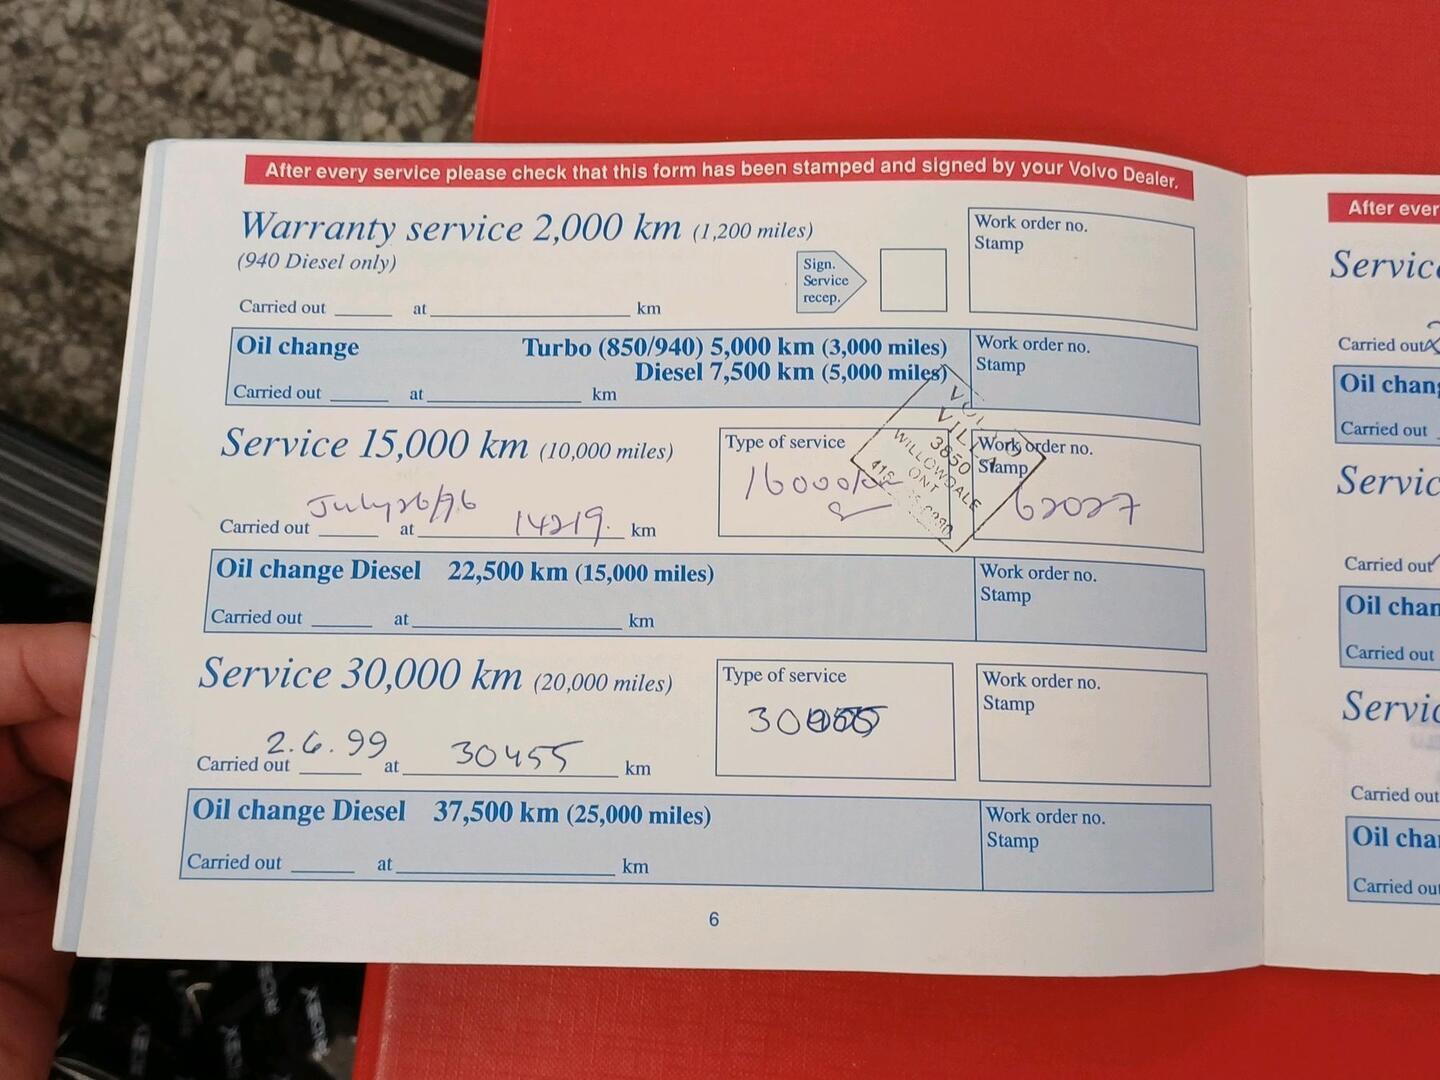 After every service please check that this form has been stamped and signed by your Volvo Dealer.
Warranty service 2,000 km (1,200 miles)
(940 Diesel only)
Sign.
Service
recep.
Work order no.
Stamp
Carried out at km
Oil change Turbo (850/940) 5,000 km (3,000 miles)
Diesel 7,500 km (5,000 miles)
Carried out at km
Work order no.
Stamp
Service 15,000 km (10,000 miles)
Type of service
Work order no.
Stamp
July 26/96 14219.
Carried out at km
62027
3850
WILLOWDALE
ONT
Oil change Diesel 22,500 km (15,000 miles)
Carried out at km
Work order no.
Stamp
Service 30,000 km (20,000 miles)
Type of service
Work order no.
Stamp
2.6.99 30455
Carried out at km
Oil change Diesel 37,500 km (25,000 miles)
Carried out at km
Work order no.
Stamp
6
After ever
Servic
Carried out
Oil chang
Carried out
Servic
Carried out
Oil chan
Carried out
Servic
Carried out
Oil chan
Carried out